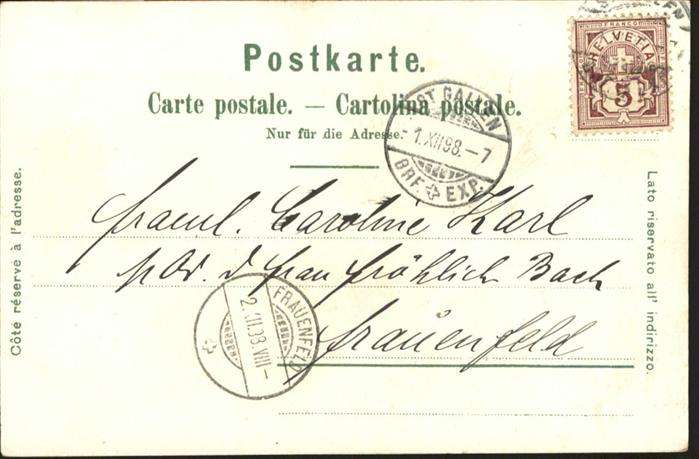 Postkarte.
Carte postale. — Cartolina postale.
Nur für die Adresse.
HELVETIA
FRANCO
5
ST GALLEN
1.XII.98.—7
BRF EXP.
Côté réservé à l'adresse.
Lato riservato all' indirizzo.
Fräul. Caroline Karl
p. Ad. d Frau Fröhlich Bach
Frauenfeld
FRAUENFELD
2.XII.98.VIII—